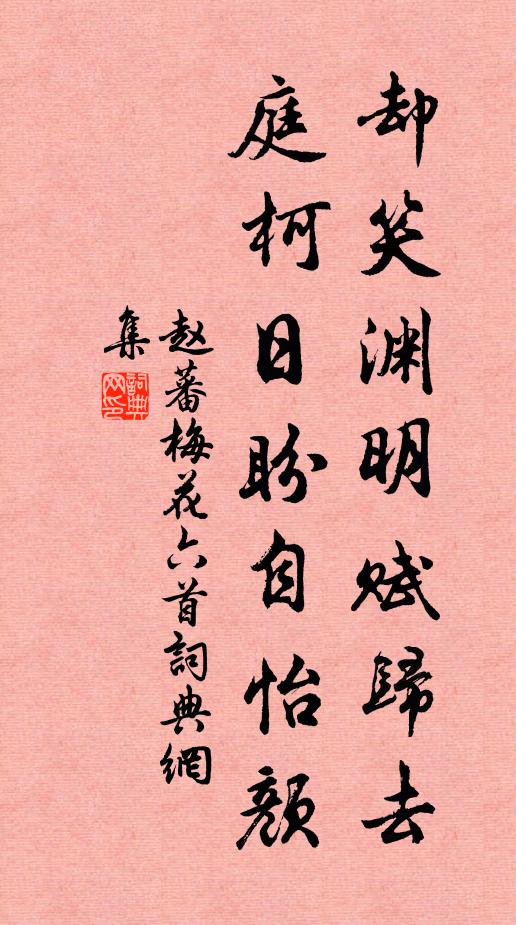 却笑渊明赋歸去
庭柯日盼自怡顔
赵蕃梅花六首詞典網
集
詞典
网印